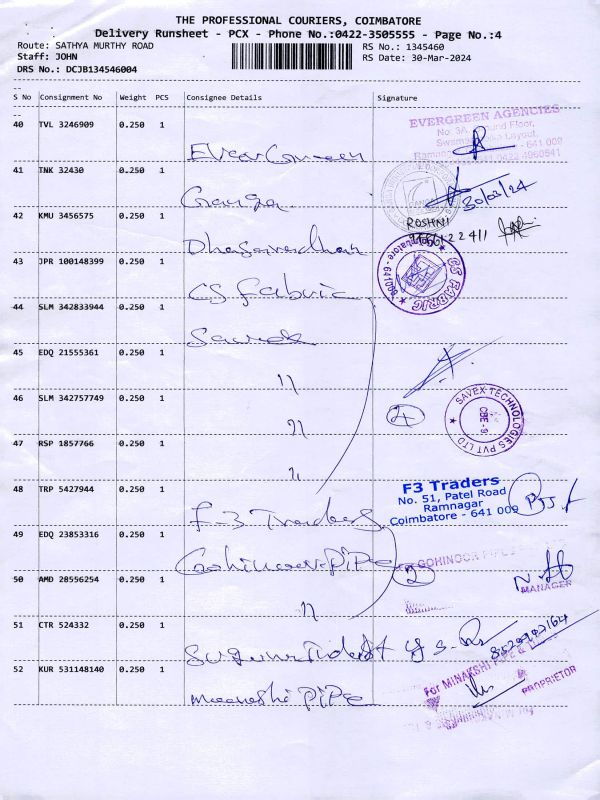 THE PROFESSIONAL COURIERS, COIMBATORE
Delivery Runsheet - PCX - Phone No.:0422-3505555 - Page No.:4
Route: SATHYA MURTHY ROAD RS No.: 1345460
Staff: JOHN RS Date: 30-Mar-2024
DRS No.: DCJB134546004
S No Consignment No Weight PCS Consignee Details Signature
40 TVL 3246909 0.250 1
EVERGREEN AGENCIES
No. 3A, Ground Floor,
Layout,
641 009
0422 4960541
Ever Green
41 TNK 32430 0.250 1
30/03/24
Ganga
42 KMU 3456575 0.250 1 ROSHNI
Dhasaradhan
43 JPR 100148399 0.250 1
CS FABRIC
Coimbatore - 641009
CS Fabric
44 SLM 342833944 0.250 1
Savex
45 EDQ 21555361 0.250 1
"
46 SLM 342757749 0.250 1
" 4
SAVEX TECHNOLOGIES PVT LTD
CBE-9
47 RSP 1857766 0.250 1
"
48 TRP 5427944 0.250 1
F3 Traders
No. 51, Patel Road
Ramnagar
Coimbatore - 641 009
F-3 Traders
49 EDQ 23853316 0.250 1
GOHINOOR
Gohinoor PiPe
50 AMD 28556254 0.250 1 2
MANAGER
"
51 CTR 524332 0.250 1
52 KUR 531148140 0.250 1
For MINAKSHI PIPE &
PROPRIETOR
Meenashi PiPe